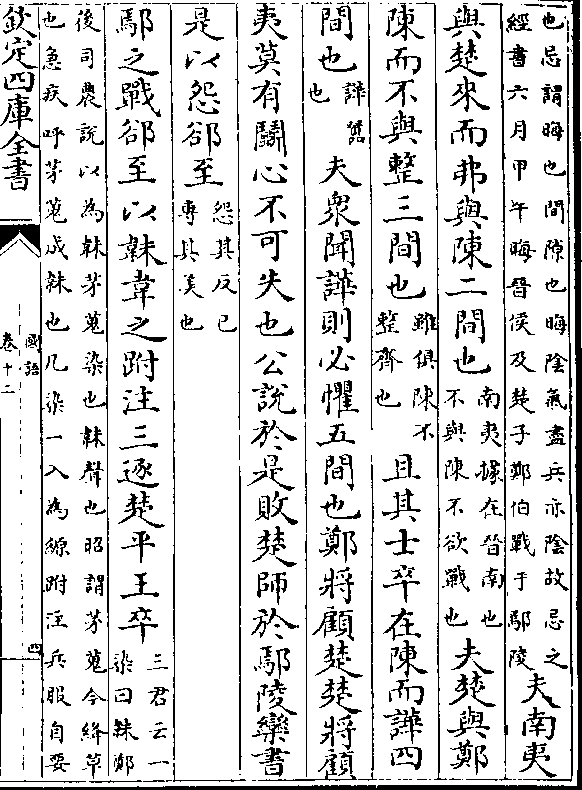 也忌謂晦也間隙也晦陰氣盡兵亦陰故忌之
經書六月甲午晦晉侯及楚子鄭伯戰于鄢陵
夫南夷
與楚來而弗與陳二間也
南夷據在晉南也
不與陳不欲戰也
夫楚與鄭
陳而不與整三間也
雖俱陳不
整齊也
且其士卒在陳而譁四
間也
譁嚻
也
夫衆聞譁則必懼五間也鄭將顧楚楚將顧
夷莫有鬭心不可失也公說於是敗楚師於鄢陵欒書
是以怨郤至
怨其反己
專其美也
鄢之戰郤至以韎韋之跗注三逐楚平王卒
三君云一
染曰韎鄭
後司農說以為韎茅蒐染也韎聲也昭謂茅蒐今絳草
也急疾呼茅蒐成韎也凡染一入為縓跗注兵服自要
欽定四庫全書
國語
卷十二
四